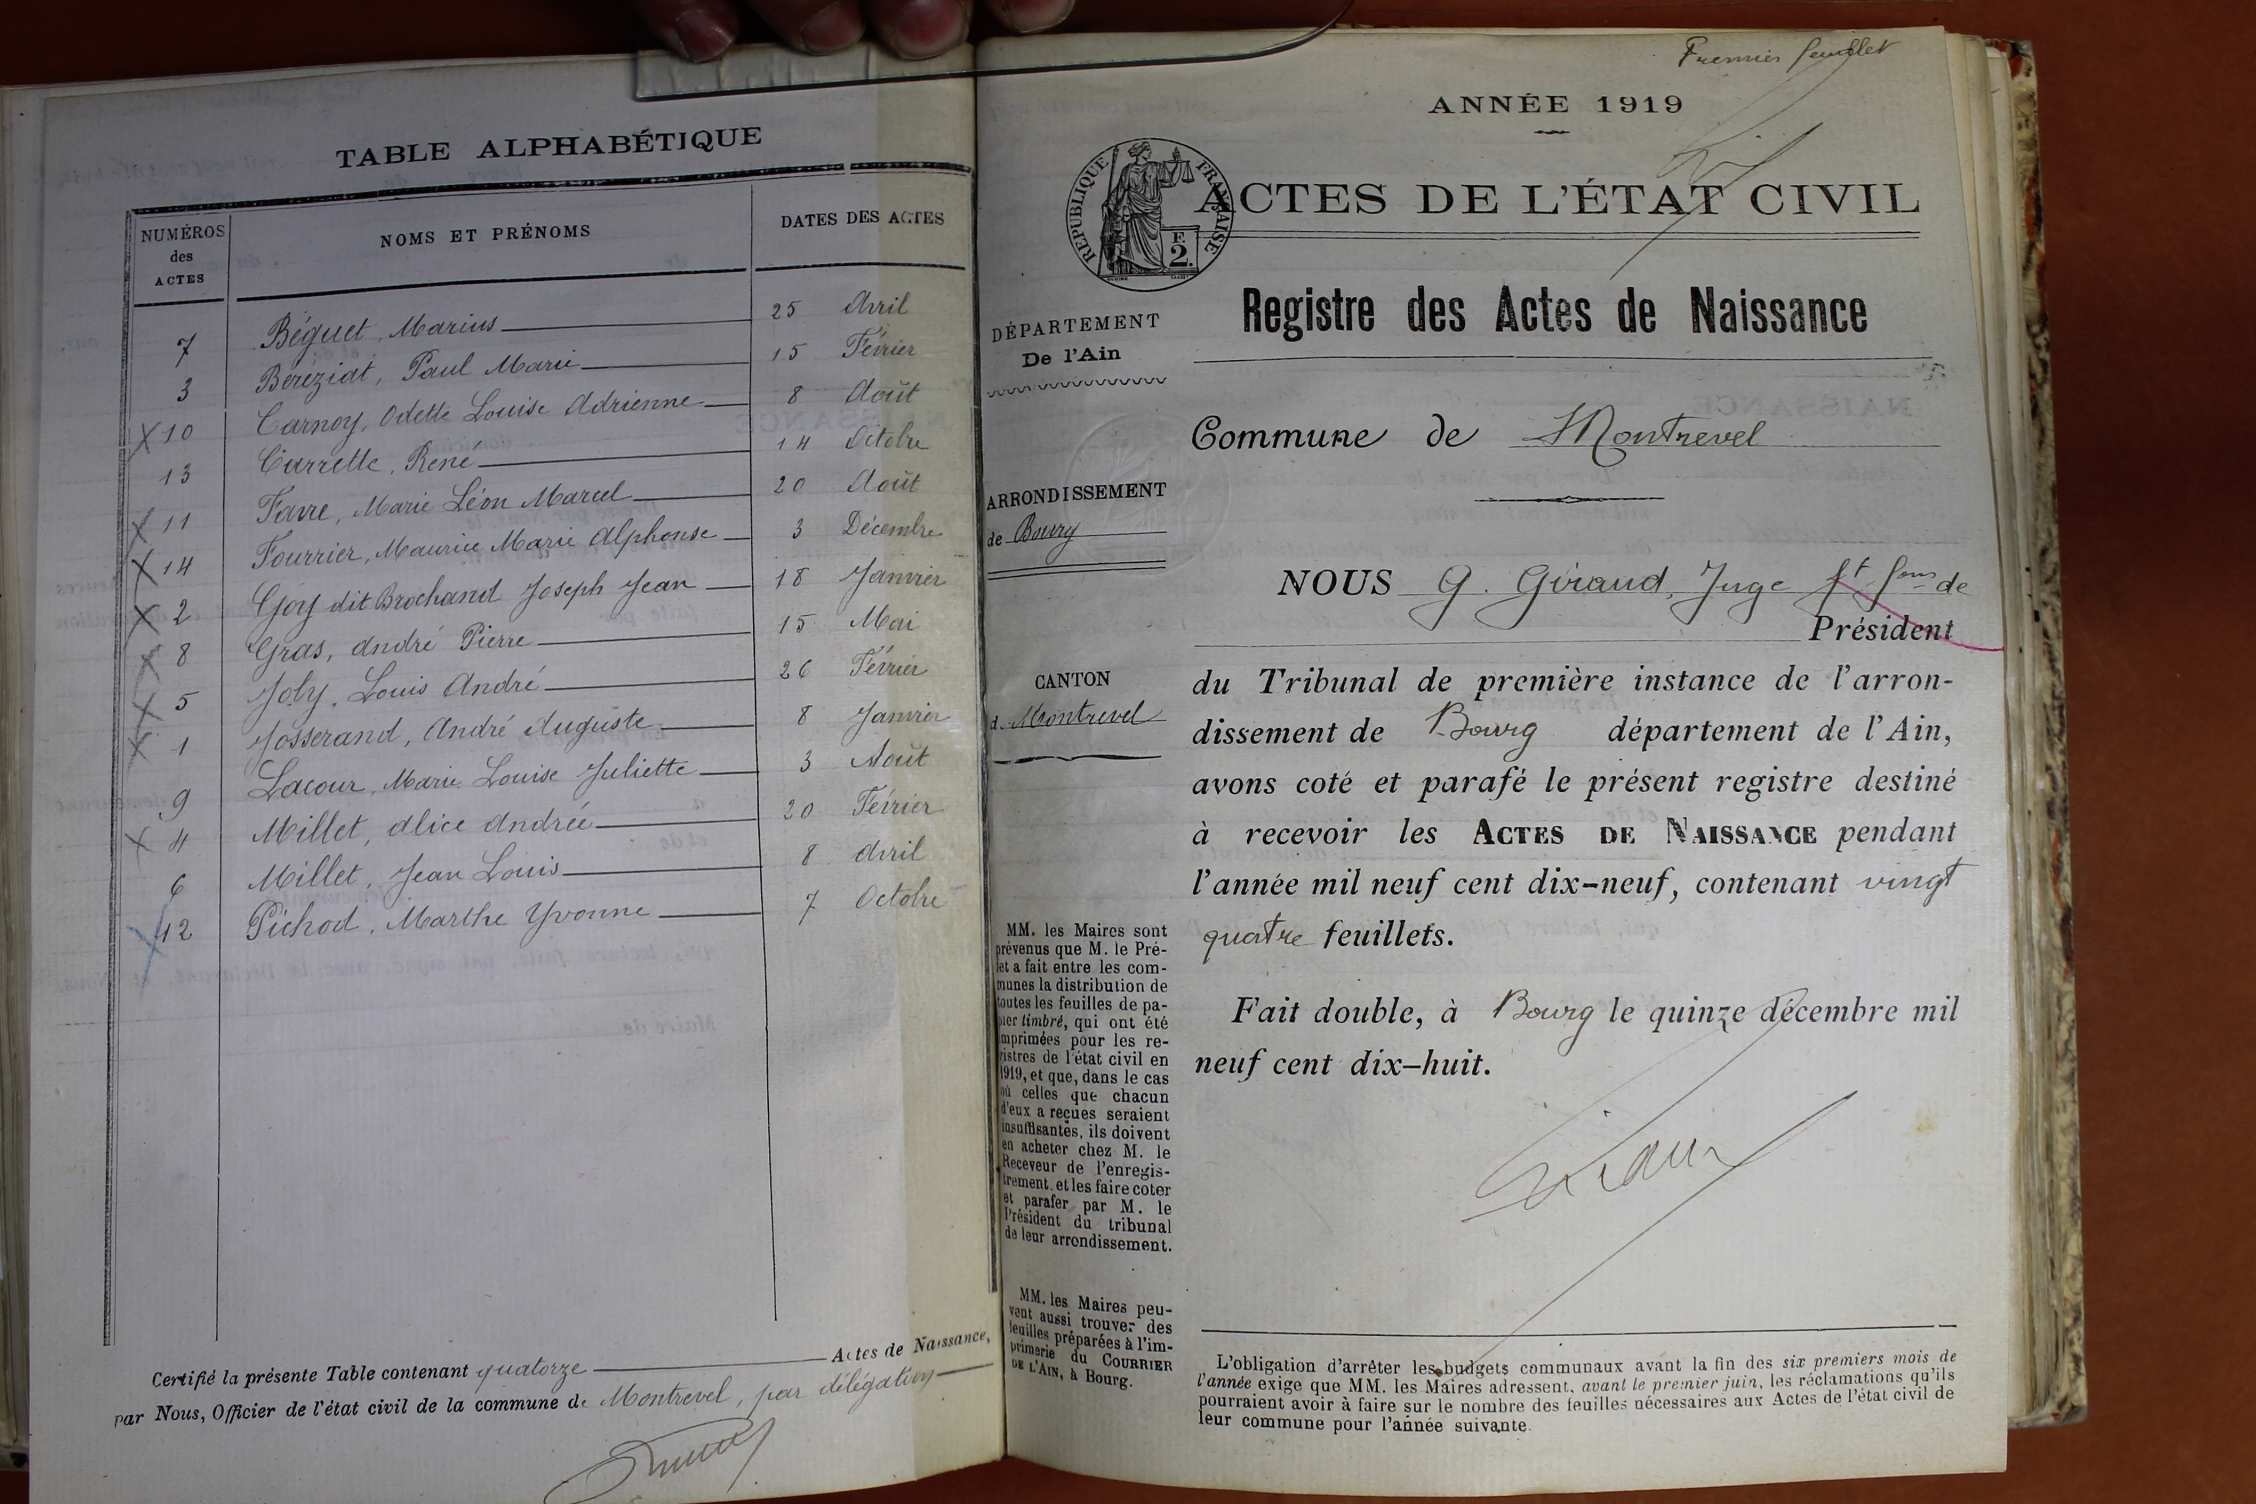 TABLE ALPHABÉTIQUE
NUMÉROS des ACTES
NOMS ET PRÉNOMS
DATES DES ACTES
7 Béguet, Marius 25 Avril
3 Béréziat, Paul Marie 15 Février
10 Carnoy, Odette Louise Adrienne 8 Août
13 Currette, René 14 Octobre
11 Favre, Marie Léon Marcel 20 Août
14 Fourrier, Maurice Marie Alphonse 3 Décembre
2 Goy dit Brochand Joseph Jean 18 Janvier
8 Gras, André Pierre 15 Mai
5 Joly, Louis André 26 Février
1 Josserand, André Auguste 8 Janvier
9 Lacour, Marie Louise Juliette 3 Août
4 Millet, Alice Andrée 20 Février
6 Millet, Jean Louis 8 Avril
12 Pichod, Marthe Yvonne 7 Octobre
Certifié la présente Table contenant quatorze Actes de Naissance,
par Nous, Officier de l'état civil de la commune de Montrevel, par délégation
Premier feuillet
ANNÉE 1919
RÉPUBLIQUE FRANÇAISE
F. 2.
ACTES DE L'ÉTAT CIVIL
Registre des Actes de Naissance
DÉPARTEMENT
De l'Ain
Commune de Montrevel
ARRONDISSEMENT
de Bourg
CANTON
d. Montrevel
MM. les Maires sont
prévenus que M. le Pré-
fet a fait entre les com-
munes la distribution de
toutes les feuilles de pa-
pier timbré, qui ont été
imprimées pour les re-
gistres de l'état civil en
1919, et que, dans le cas
où celles que chacun
d'eux a reçues seraient
insuffisantes, ils doivent
en acheter chez M. le
Receveur de l'enregis-
trement et les faire coter
et parafer par M. le
Président du tribunal
de leur arrondissement.
MM. les Maires peu-
vent aussi trouver des
feuilles préparées à l'im-
primerie du COURRIER
DE L'AIN, à Bourg.
NOUS G. Giraud, Juge ft fons de
Président
du Tribunal de première instance de l'arron-
dissement de Bourg département de l'Ain,
avons coté et parafé le présent registre destiné
à recevoir les ACTES DE NAISSANCE pendant
l'année mil neuf cent dix-neuf, contenant vingt
quatre feuillets.
Fait double, à Bourg le quinze décembre mil
neuf cent dix-huit.
L'obligation d'arrêter les budgets communaux avant la fin des six premiers mois de
l'année exige que MM. les Maires adressent, avant le premier juin, les réclamations qu'ils
pourraient avoir à faire sur le nombre des feuilles nécessaires aux Actes de l'état civil de
leur commune pour l'année suivante.